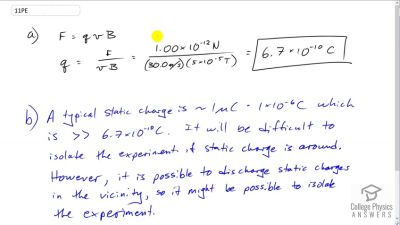 11PE
a) F = q v B
q = F / vB = 1.00×10⁻¹² N / (30.0 m/s)(5×10⁻⁵ T) = 6.7×10⁻¹⁰ C
b) A typical static charge is ~ 1μC = 1×10⁻⁶C which
is >> 6.7×10⁻¹⁰C. It will be difficult to
isolate the experiment if static charge is around.
However, it is possible to discharge static charges
in the vicinity, so it might be possible to isolate
the experiment.
College Physics
ANSWERS